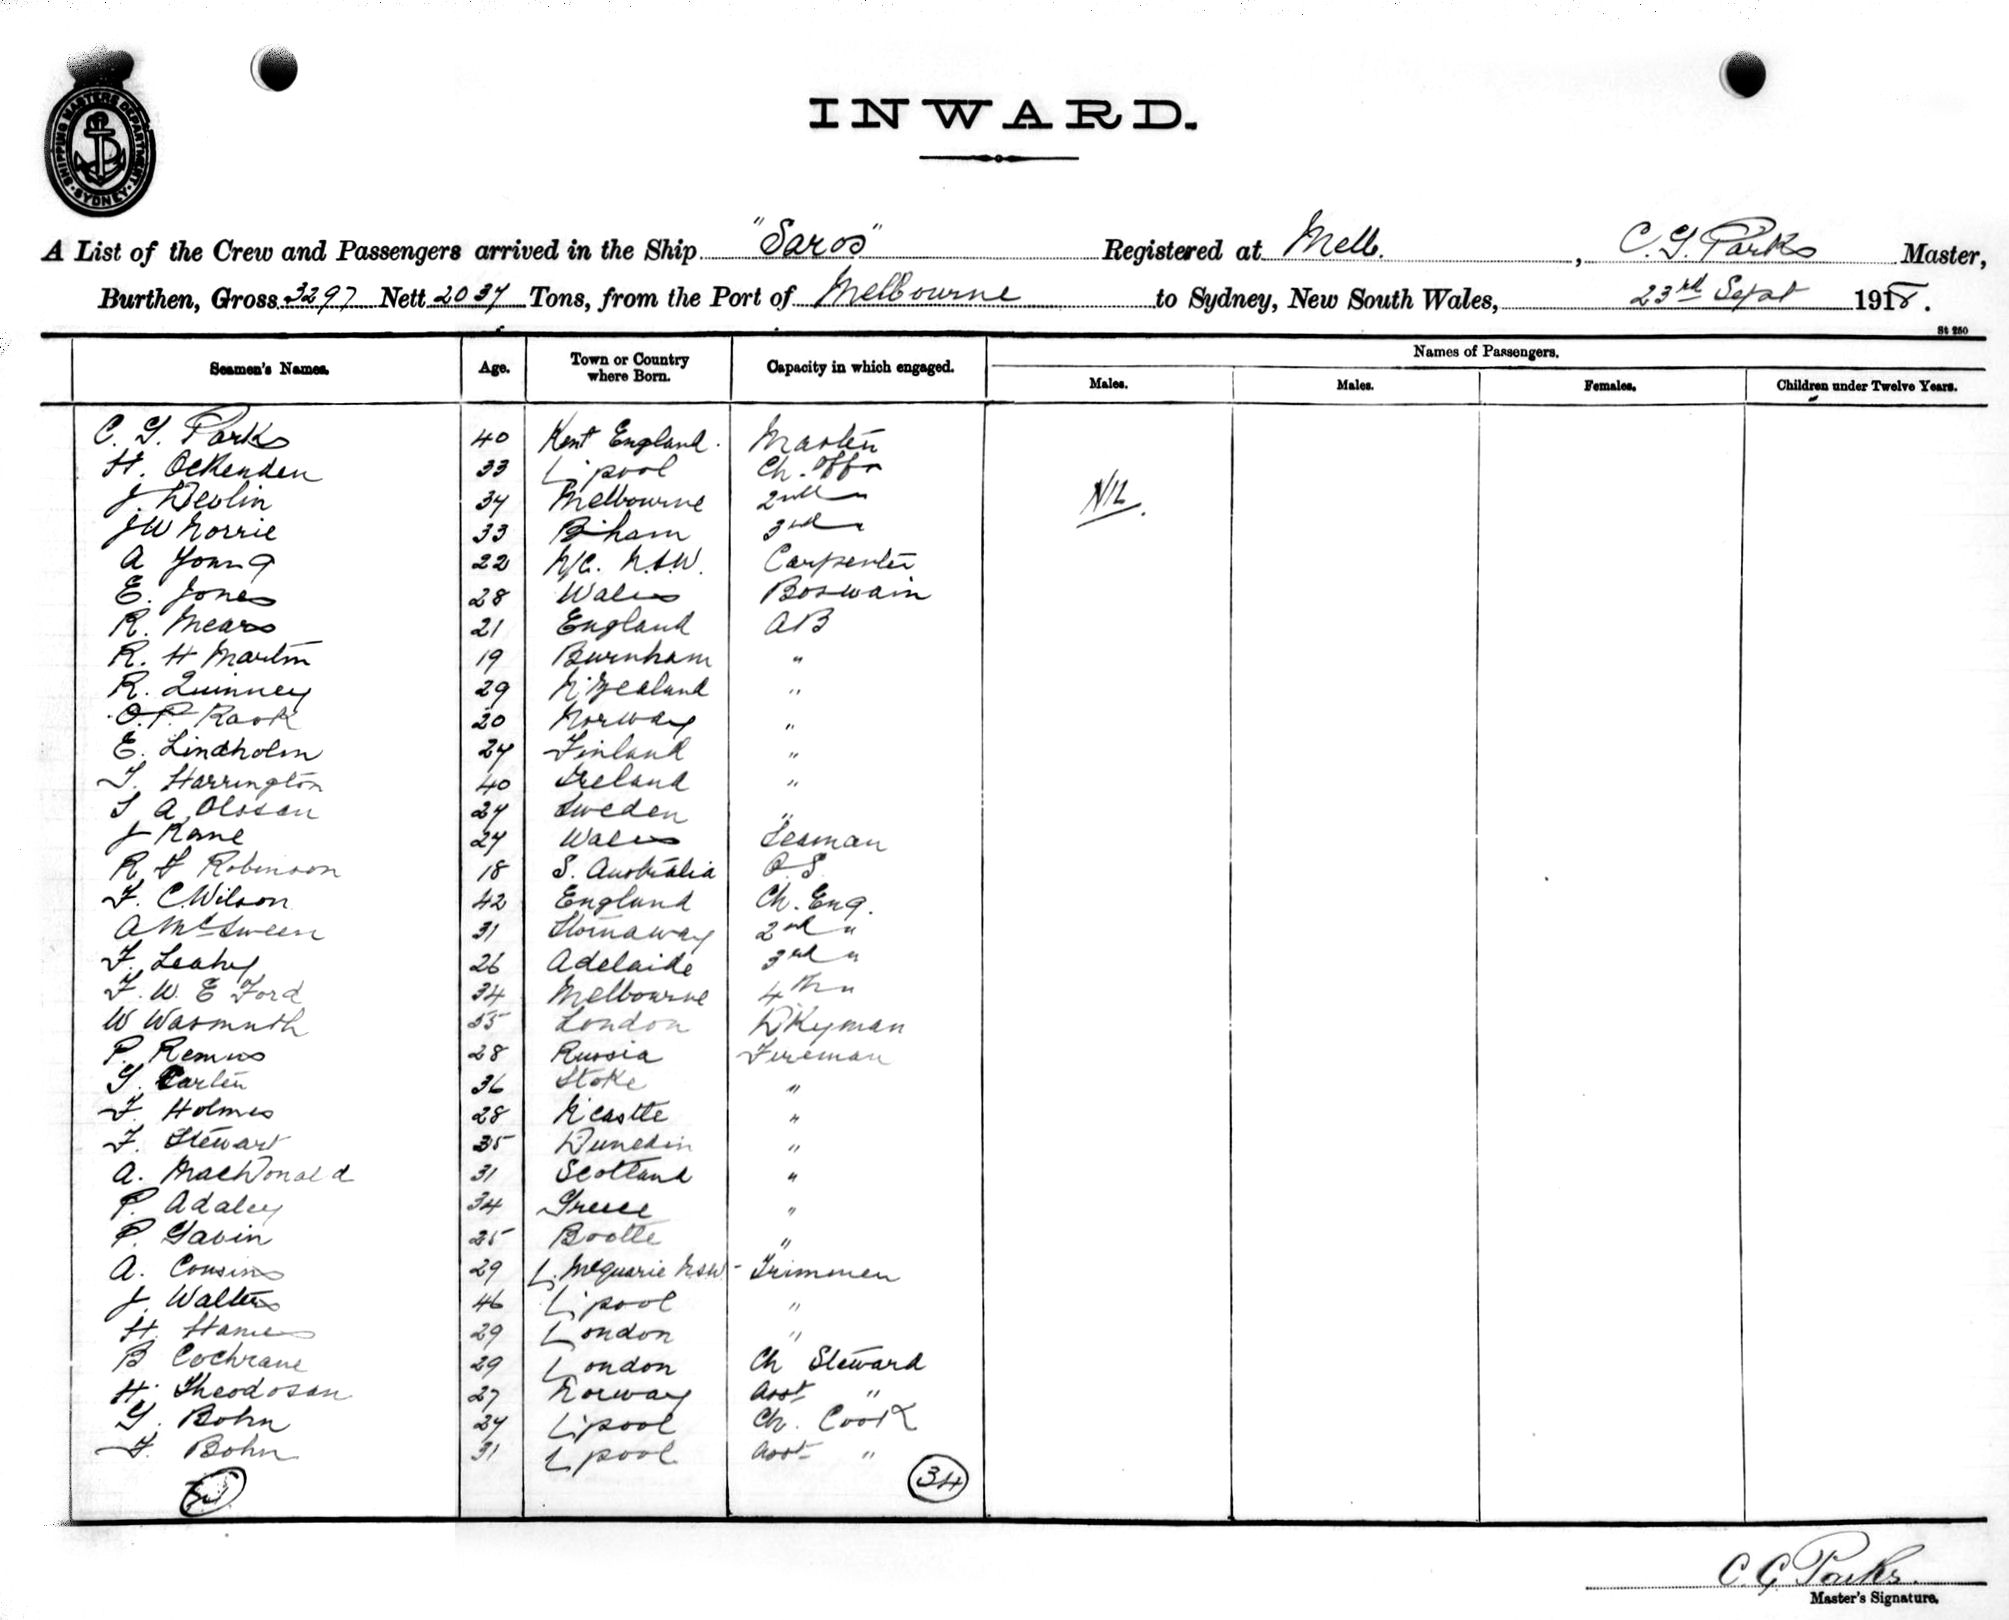 SHIPPING MASTERS DEPARTMENT SYDNEY
INWARD.
A List of the Crew and Passengers arrived in the Ship "Saros" Registered at Melb., C. G. Parks Master,
Burthen, Gross 3297 Nett 2037 Tons, from the Port of Melbourne to Sydney, New South Wales, 23rd Sept 1918.
St 250
Seamen's Names. Age. Town or Country where Born. Capacity in which engaged. Names of Passengers.
Males. Males. Females. Children under Twelve Years.
C. G. Parks 40 Kent England. Master
H. Ockenden 33 L'pool Ch. Offr
J. Devlin 34 Melbourne 2nd "
NIL.
J W Norrie 33 B'ham 3rd "
A Young 22 N/C. N.S.W. Carpenter
E. Jones 28 Wales Boswain
R. Mears 21 England AB
R. H Martin 19 Burnham "
R. Quinney 29 N'Zealand "
O.P. Raok 20 Norway "
E. Lindholm 27 Finland "
T. Harrington 40 Ireland "
S A Olssen 27 Sweden "
J Kane 27 Wales Seaman
R F Robinson 18 S. Australia O.S.
F. C. Wilson 42 England Ch. Eng.
A McSween 31 Stornaway 2nd "
F. Leahy 26 Adelaide 3rd "
F. W. E Ford 34 Melbourne 4th "
W Wasmuth 55 London D'Kyman
P. Remus 28 Russia Fireman
G. Carter 36 Stoke "
F. Holmes 28 N'castle "
F. Stewart 35 Dunedin "
A. MacDonald 31 Scotland "
P. Adaley 34 Greece "
P. Gavin 25 Bootle "
A. Cousins 29 L. McQuarie NSW Trimmer
J. Walters 46 L'pool "
H. 29 London "
B Cochrane 29 London Ch Steward
H. Theodosan 27 Norway Asst "
G. Bohn 27 L'pool Ch. Cook
F. Bohn 31 L'pool Asst "
34
C. G. Parks.
Master's Signature.